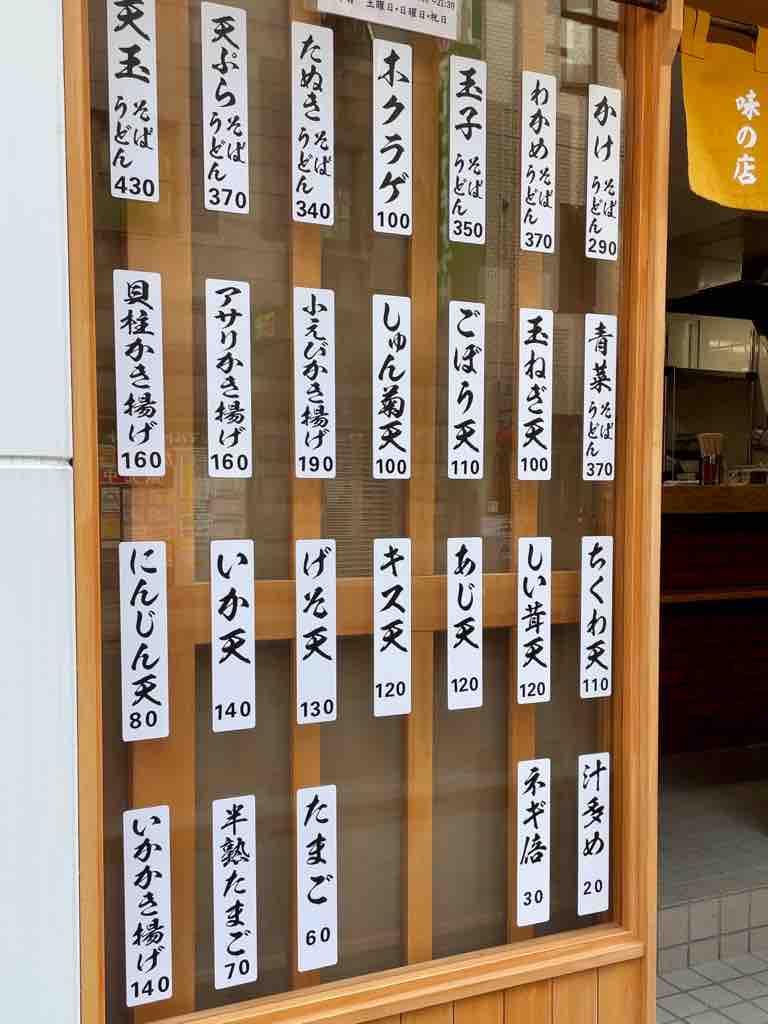 土曜日・日曜日・祝日
味の店
かけ そば うどん 290
わかめ そば うどん 370
玉子 そば うどん 350
ホクラゲ 100
たぬき そば うどん 340
天ぷら そば うどん 370
天玉 そば うどん 430
青菜 そば うどん 370
玉ねぎ天 100
ごぼう天 110
しゅん菊天 100
小えびかき揚げ 190
アサリかき揚げ 160
貝柱かき揚げ 160
ちくわ天 110
しい茸天 120
あじ天 120
キス天 120
げそ天 130
いか天 140
にんじん天 80
汁多め 20
ネギ倍 30
たまご 60
半熟たまご 70
いかかき揚げ 140